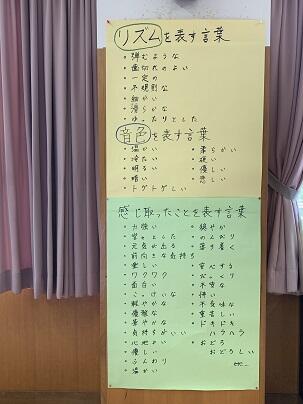 リズムを表す言葉
・弾むような
・歯切れのよい
・一定の
・不規則な
・細かい
・滑らかな
・ゆったりとした
音色を表す言葉
・温かい
・冷たい
・明るい
・暗い
・トゲトゲしい
・柔らかい
・硬い
・優しい
・悲しい
感じ取ったことを表す言葉
・力強い
・堂々とした
・元気が出る
・前向きな気持ち
・楽しい
・ワクワク
・面白い
・こっけいな
・軽やかな
・優雅な
・華やかな
・気持ちがいい
・心地よい
・優しい
・ふんわり
・温かい
・穏やか
・のんびり
・落ち着く
・安心する
・びっくり
・不安な
・怖い
・不気味な
・重苦しい
・ドキドキ
ハラハラ
・おどろ
おどろしい
etc…